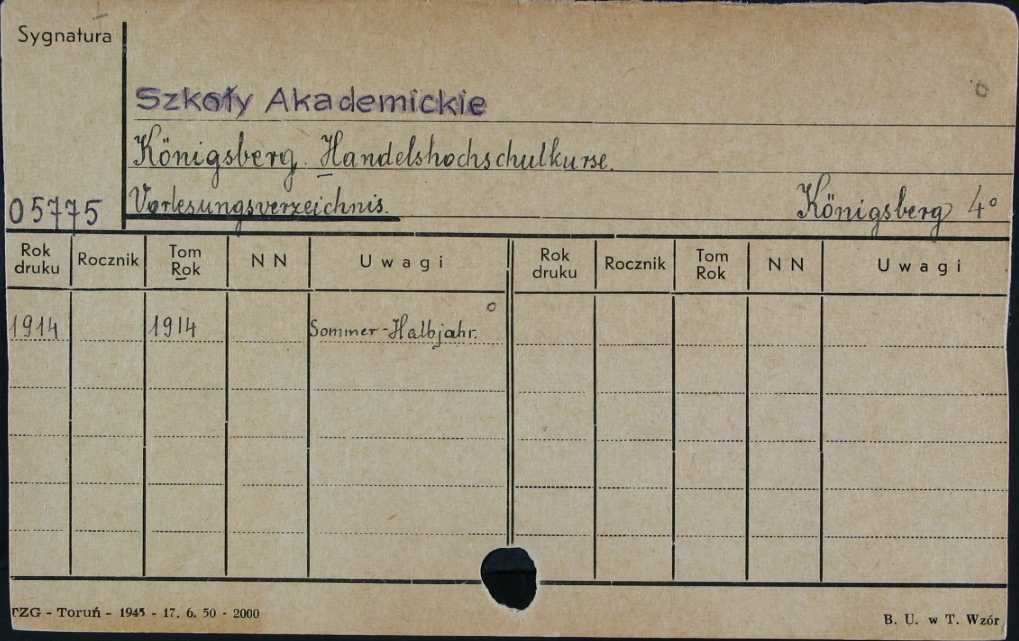 Sygnatura
Szkoły Akademickie
Königsberg. Handelshochschulkurse.
05775 Vorlesungsverzeichnis. Königsberg 4°
Rok druku Rocznik Tom Rok N N Uwagi Rok druku Rocznik Tom Rok N N Uwagi
1914 1914 Sommer-Halbjahr.
TZG - Toruń - 1945 - 17. 6. 50 - 2000 B. U. w T. Wzór